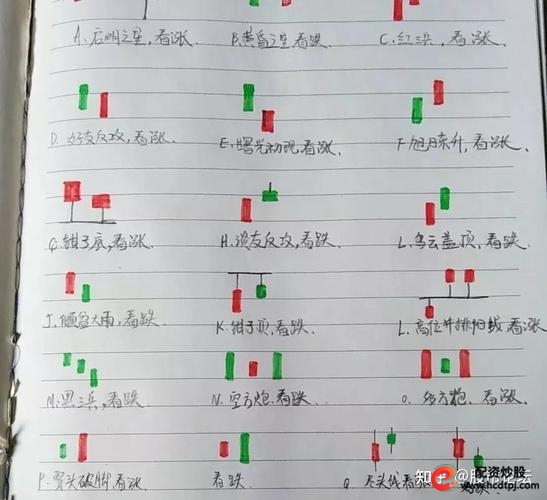 A.启明之星,看涨.
B.黄昏之星看跌
C.红三兵,看涨
D.好友反攻,看涨.
E.曙光初现看涨.
F.旭日东升,看涨.
G.钳子底,看涨.
H.淡友反攻,看跌.
L.乌云盖顶,看跌
J.倾盆大雨,看跌.
K.钳子顶,看跌.
L.高位并排阳线看涨
M.黑三兵,看跌.
N.空方炮.看跌..
O.多方炮.看涨.
看涨.
看跌
知乎 @股市论坛
配资炒股
www.hcdtpj.com